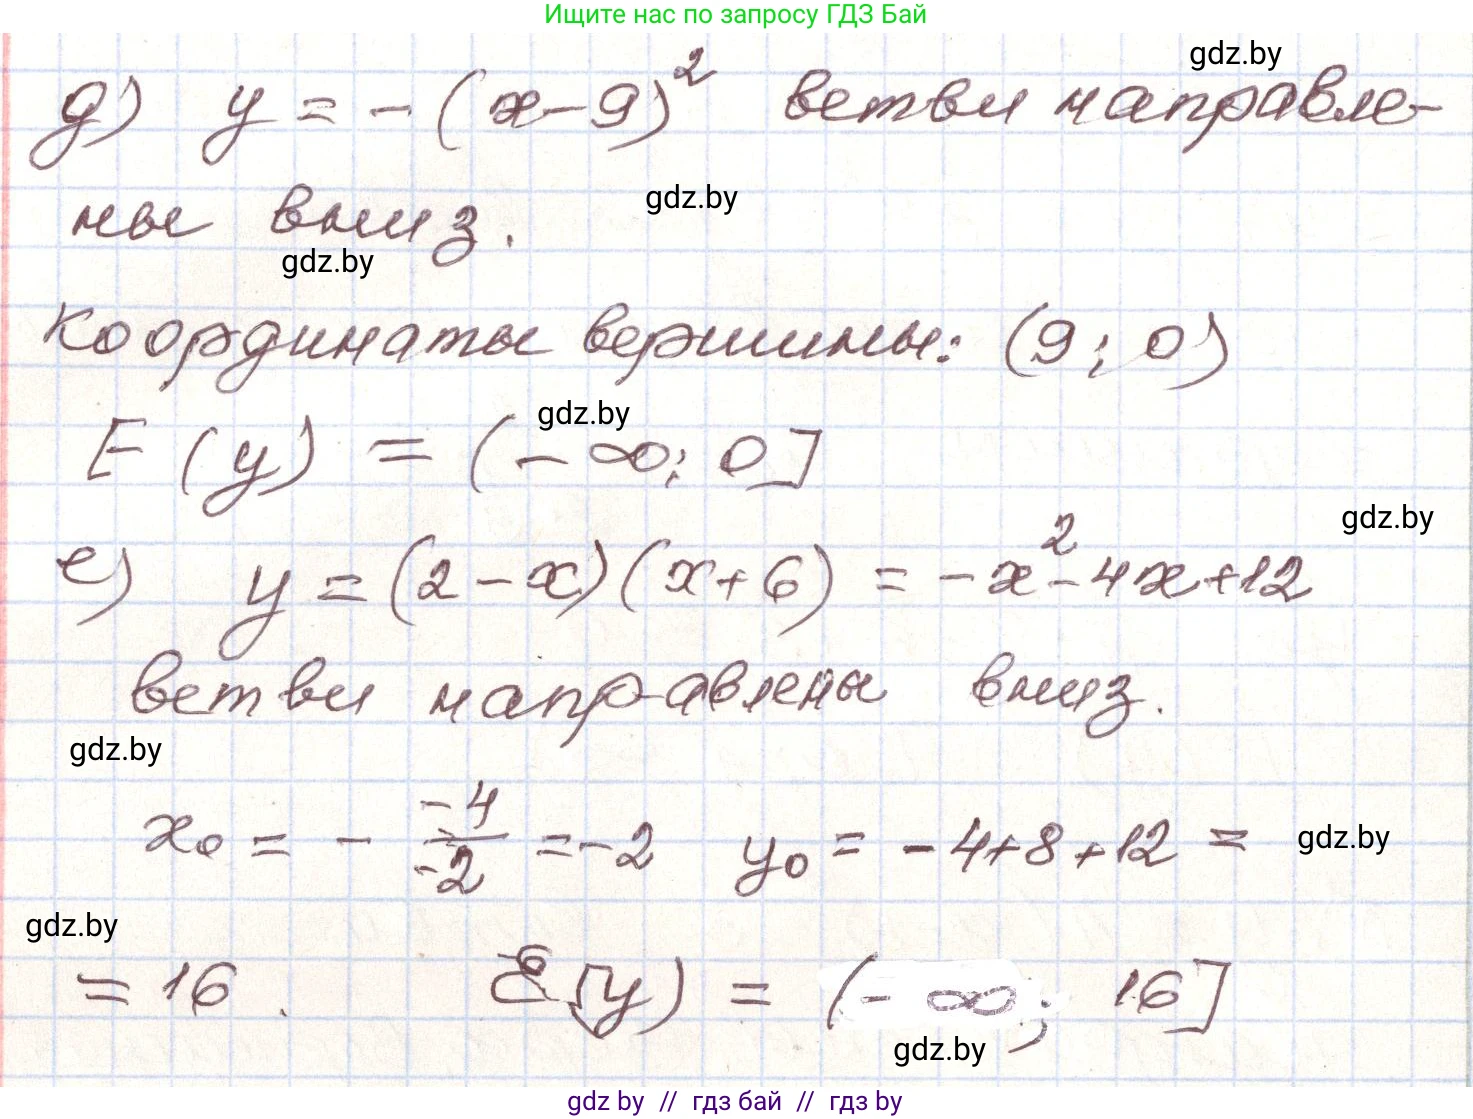 Ищите нас по запросу ГДЗ Бай
gdz.by
д) y = -(x-9)² ветви направле-
gdz.by
ны вниз.
gdz.by
Координаты вершины: (9; 0)
gdz.by
E(y) = (-∞; 0]
gdz.by
е) y = (2-x)(x+6) = -x²-4x+12
ветви направлены вниз.
gdz.by
x₀ = - -4/-2 = -2 y₀ = -4+8+12 =
gdz.by
gdz.by
= 16. E(y) = (-∞; 16]
gdz.by
gdz.by // гдз бай // гдз by